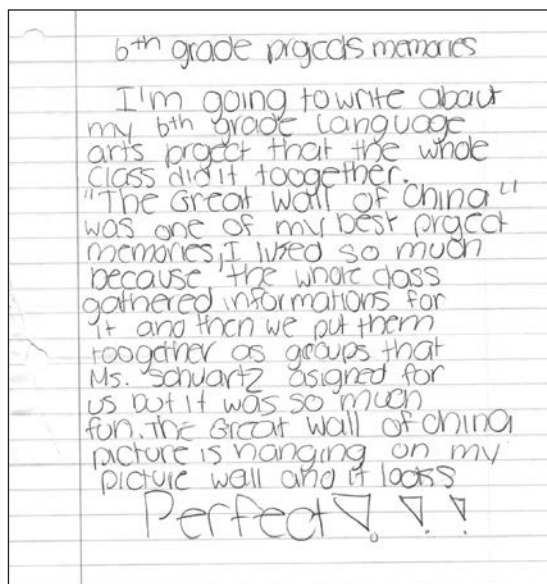 6th grade progcds memories
I'm going to write about
my 6th grade language
arts project that the whole
class did it toogether.
"The Great Wall of China"
was one of my best project
memories, I liked so much
because the whole class
gathered informations for
it and then we put them
toogether as groups that
Ms. Schuartz asigned for
us but it was so much
fun. The Great Wall of China
picture is hanging on my
picture wall and it looks
Perfect!!!